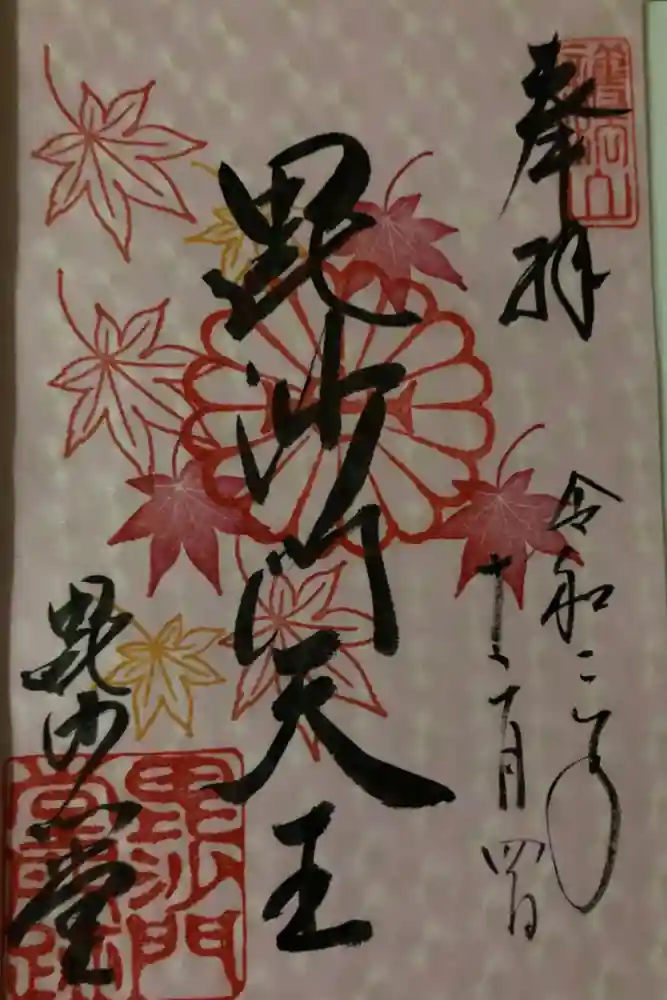 奉拝
護法山
令和二年
十一月四日
毘沙門天王
毘沙門堂
毘沙門
堂門跡